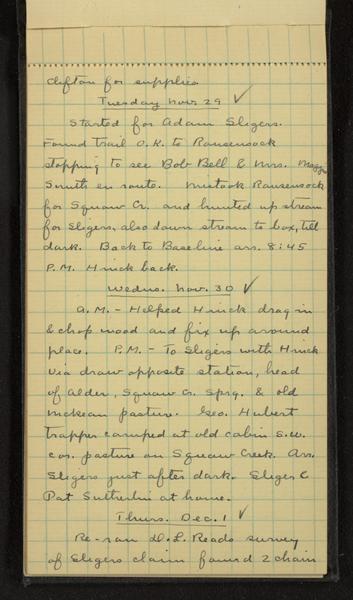 Clifton for supplies
Tuesday Nov. 29 ✓
Started for Adam Sligers.
Found trail O.K. to Rausensock
stopping to see Bob Bell & Mrs. Maggie
Smith en route. Mistook Rausensock
for Squaw Cr. and hunted up stream
for Sligers, also down stream to box, till
dark. Back to Baseline arr. 8:45
P.M. Hinck back.
Wednes. Nov. 30 ✓
A.M. - Helped Hinck drag in
& chop wood and fix up around
place. P.M. - To Sligers with Hinck
via draw opposite station, head
of Alder, Squaw Cr. Sprg. & old
McKean pasture. Geo. Hubert
trapper camped at old cabin S.W.
cor. pasture on Squaw Creek. Arr.
Sligers just after dark. Sliger &
Pat Sutherlin at home.
Thurs. Dec. 1 ✓
Re-ran D.L. Reads survey
of Sligers claim found 2 chain